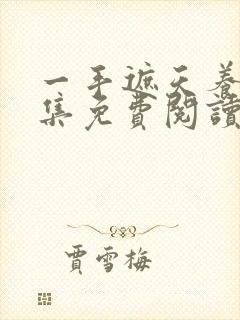 一手遮天養
集免費閱讀
賈雪梅